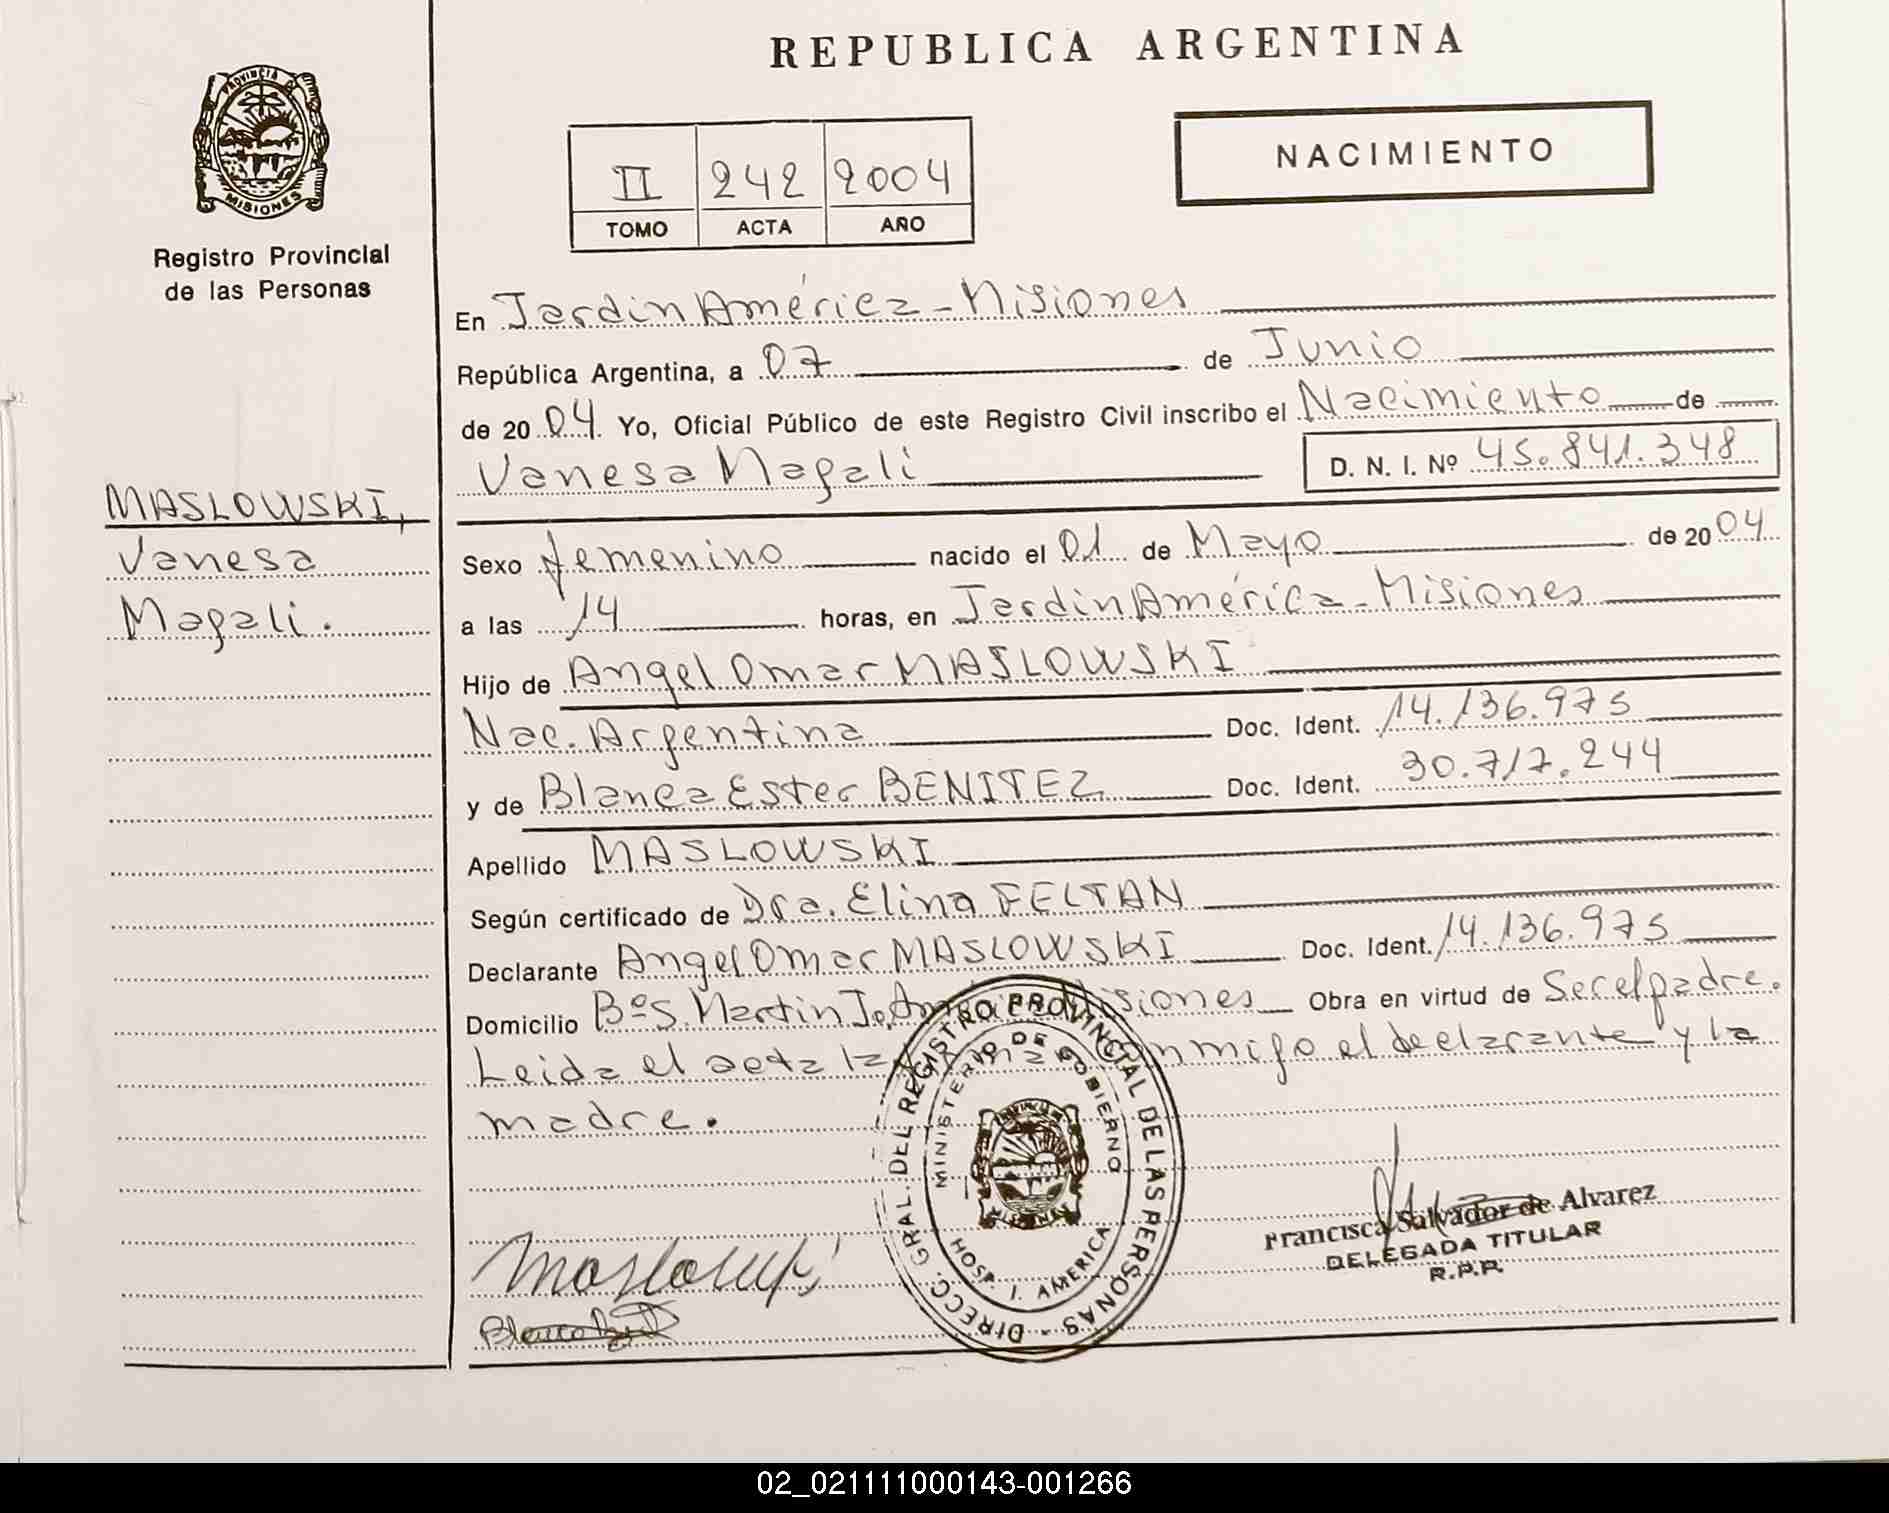 REPUBLICA ARGENTINA
PROVINCIA
MISIONES
Registro Provincial
de las Personas
II 242 2004
TOMO ACTA AÑO
NACIMIENTO
En Jardin América - Misiones
República Argentina, a 07 de Junio
de 2004 Yo, Oficial Público de este Registro Civil inscribo el Nacimiento de
Vanesa Magali D. N. I. Nº 45.841.348
MASLOWSKI,
Vanesa
Magali.
Sexo femenino nacido el 01 de Mayo de 2004
a las 14 horas, en Jardin América - Misiones
Hijo de Angel Omar MASLOWSKI
Nac. Argentina Doc. Ident. 14.136.975
y de Blanca Ester BENITEZ Doc. Ident. 30.717.244
Apellido MASLOWSKI
Según certificado de Dra. Elina FELTAN
Declarante Angel Omar MASLOWSKI Doc. Ident. 14.136.975
Domicilio Bº S. Martin J. Misiones Obra en virtud de Ser el padre.
Leida el acta la conmigo el declarante y la
madre.
DIRECC. GRAL. DEL REGISTRO PROVINCIAL DE LAS PERSONAS -
MINISTERIO DE GOBIERNO
HOSP. J. AMERICA
Maslowski
Francisca Salvador de Alvarez
DELEGADA TITULAR
R.P.P.
02_021111000143-001266